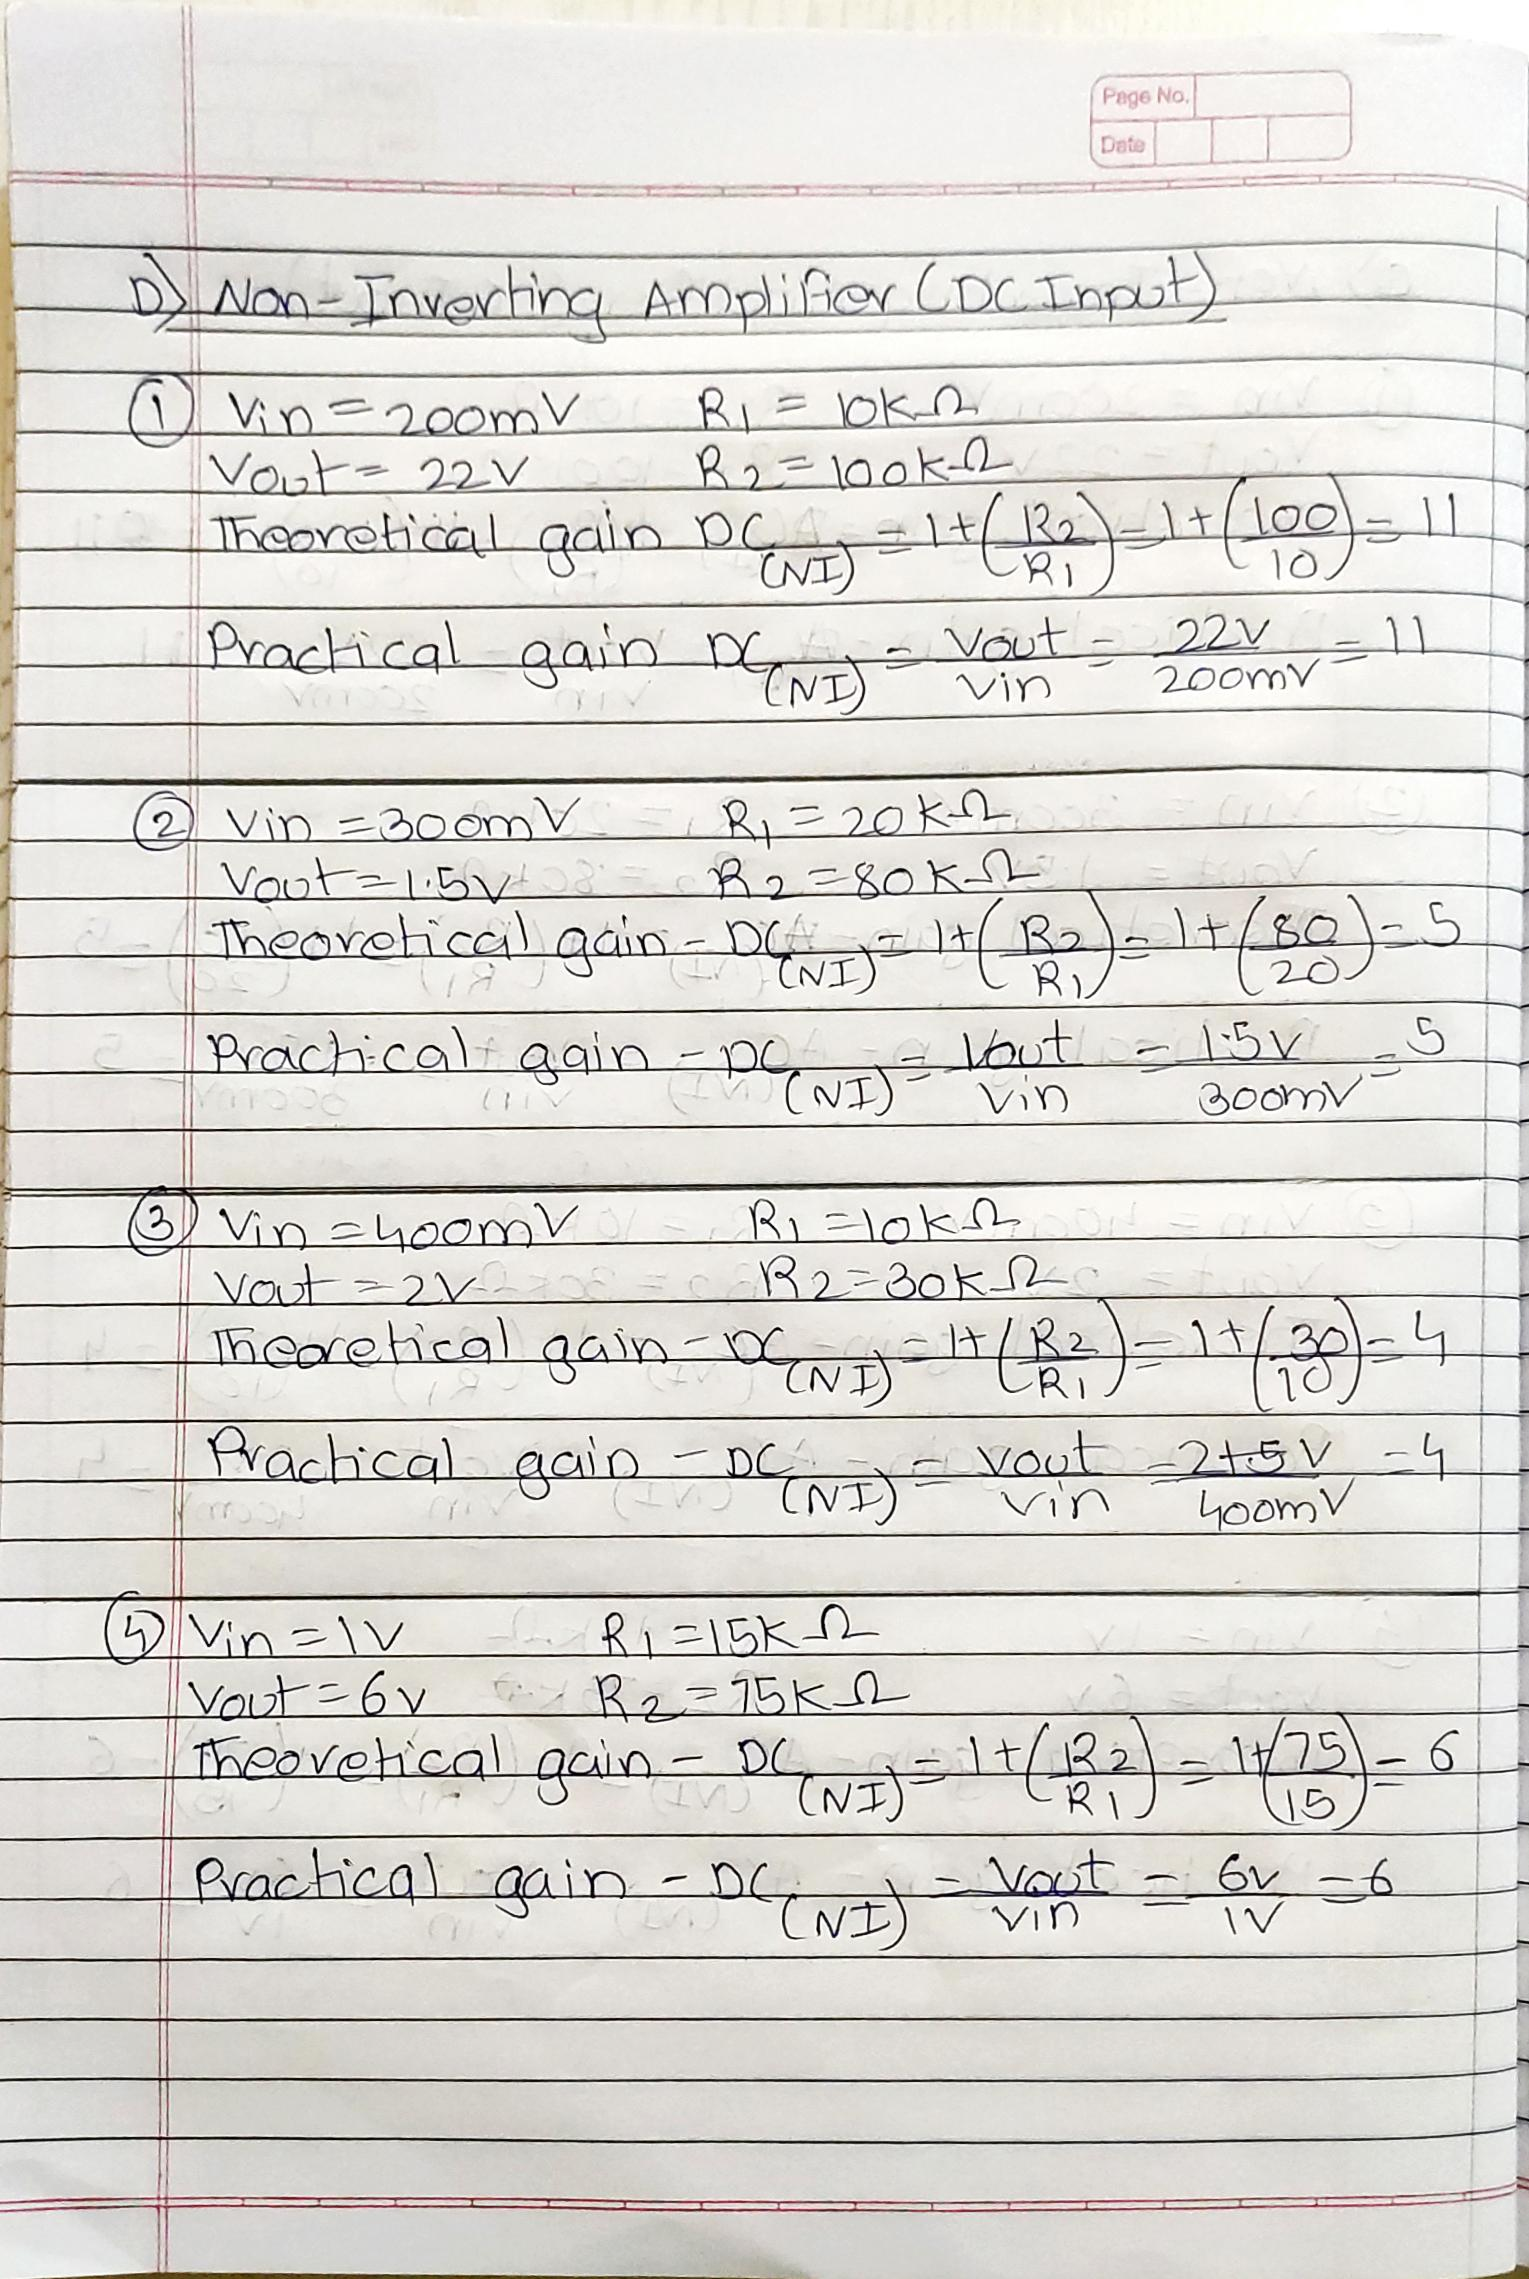 Page No.
Date
D) Non-Inverting Amplifier (DC Input)
① Vin = 200mV R1 = 10kΩ
Vout = 22V R2 = 100kΩ
Theoretical gain DC(NI) = 1+(R2/R1) = 1+(100/10) = 11
Practical gain DC(NI) = Vout/Vin = 22V/200mV = 11
② Vin = 300mV R1 = 20kΩ
Vout = 1.5V R2 = 80kΩ
Theoretical gain - DC(NI) = 1+(R2/R1) = 1+(80/20) = 5
Practical gain - DC(NI) = Vout/Vin = 1.5V/300mV = 5
③ Vin = 400mV R1 = 10kΩ
Vout = 2V R2 = 30kΩ
Theoretical gain - DC(NI) = 1+(R2/R1) = 1+(30/10) = 4
Practical gain - DC(NI) = Vout/Vin = 2+5V/400mV = 4
④ Vin = 1V R1 = 15kΩ
Vout = 6V R2 = 75kΩ
Theoretical gain - DC(NI) = 1+(R2/R1) = 1+(75/15) = 6
Practical gain - DC(NI) = Vout/Vin = 6V/1V = 6